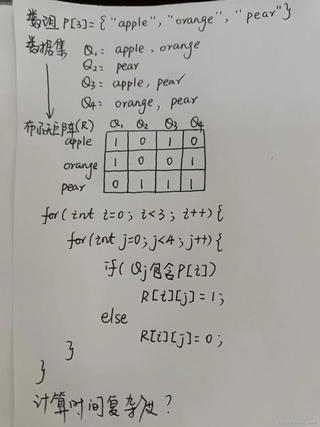 数组 P[3]={"apple", "orange", "pear"}
数据集 Q₁: apple, orange
Q₂: pear
Q₃: apple, pear
Q₄: orange, pear
布尔矩阵(R) Q₁ Q₂ Q₃ Q₄
apple 1 0 1 0
orange 1 0 0 1
pear 0 1 1 1
for(int i=0; i<3; i++){
for(int j=0; j<4; j++){
if( Qj包含P[i])
R[i][j]=1;
else
R[i][j]=0;
}
}
计算时间复杂度?